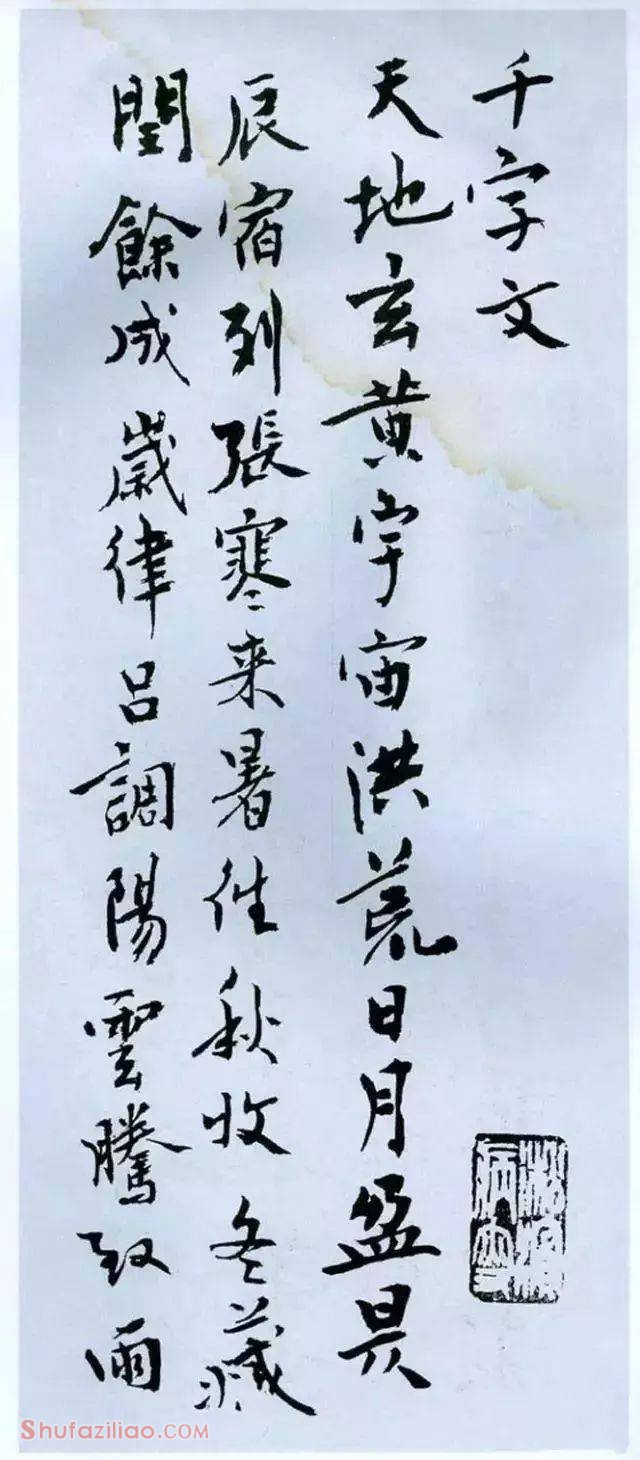 千字文
天地玄黄宇宙洪荒日月盈昃
辰宿列張寒来暑往秋收冬藏
閏餘成歲律吕調陽雲騰致雨
Shufaziliao.COM